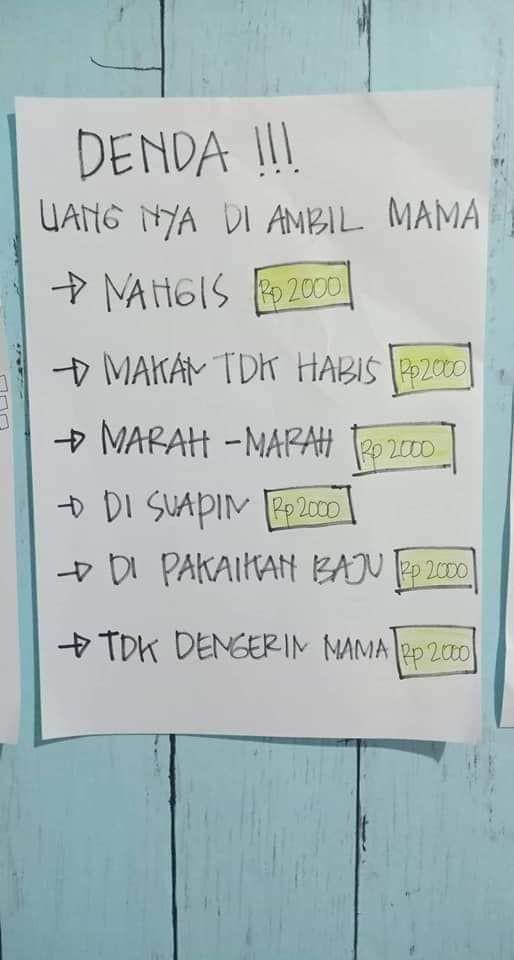 DENDA !!!
UANG NYA DI AMBIL MAMA
→ NANGIS Rp 2000
→ MAKAN TDK HABIS Rp 2000
→ MARAH - MARAH Rp 2000
→ DI SUAPIN Rp 2000
→ DI PAKAIKAN BAJU Rp 2000
→ TDK DENGERIN MAMA Rp 2000